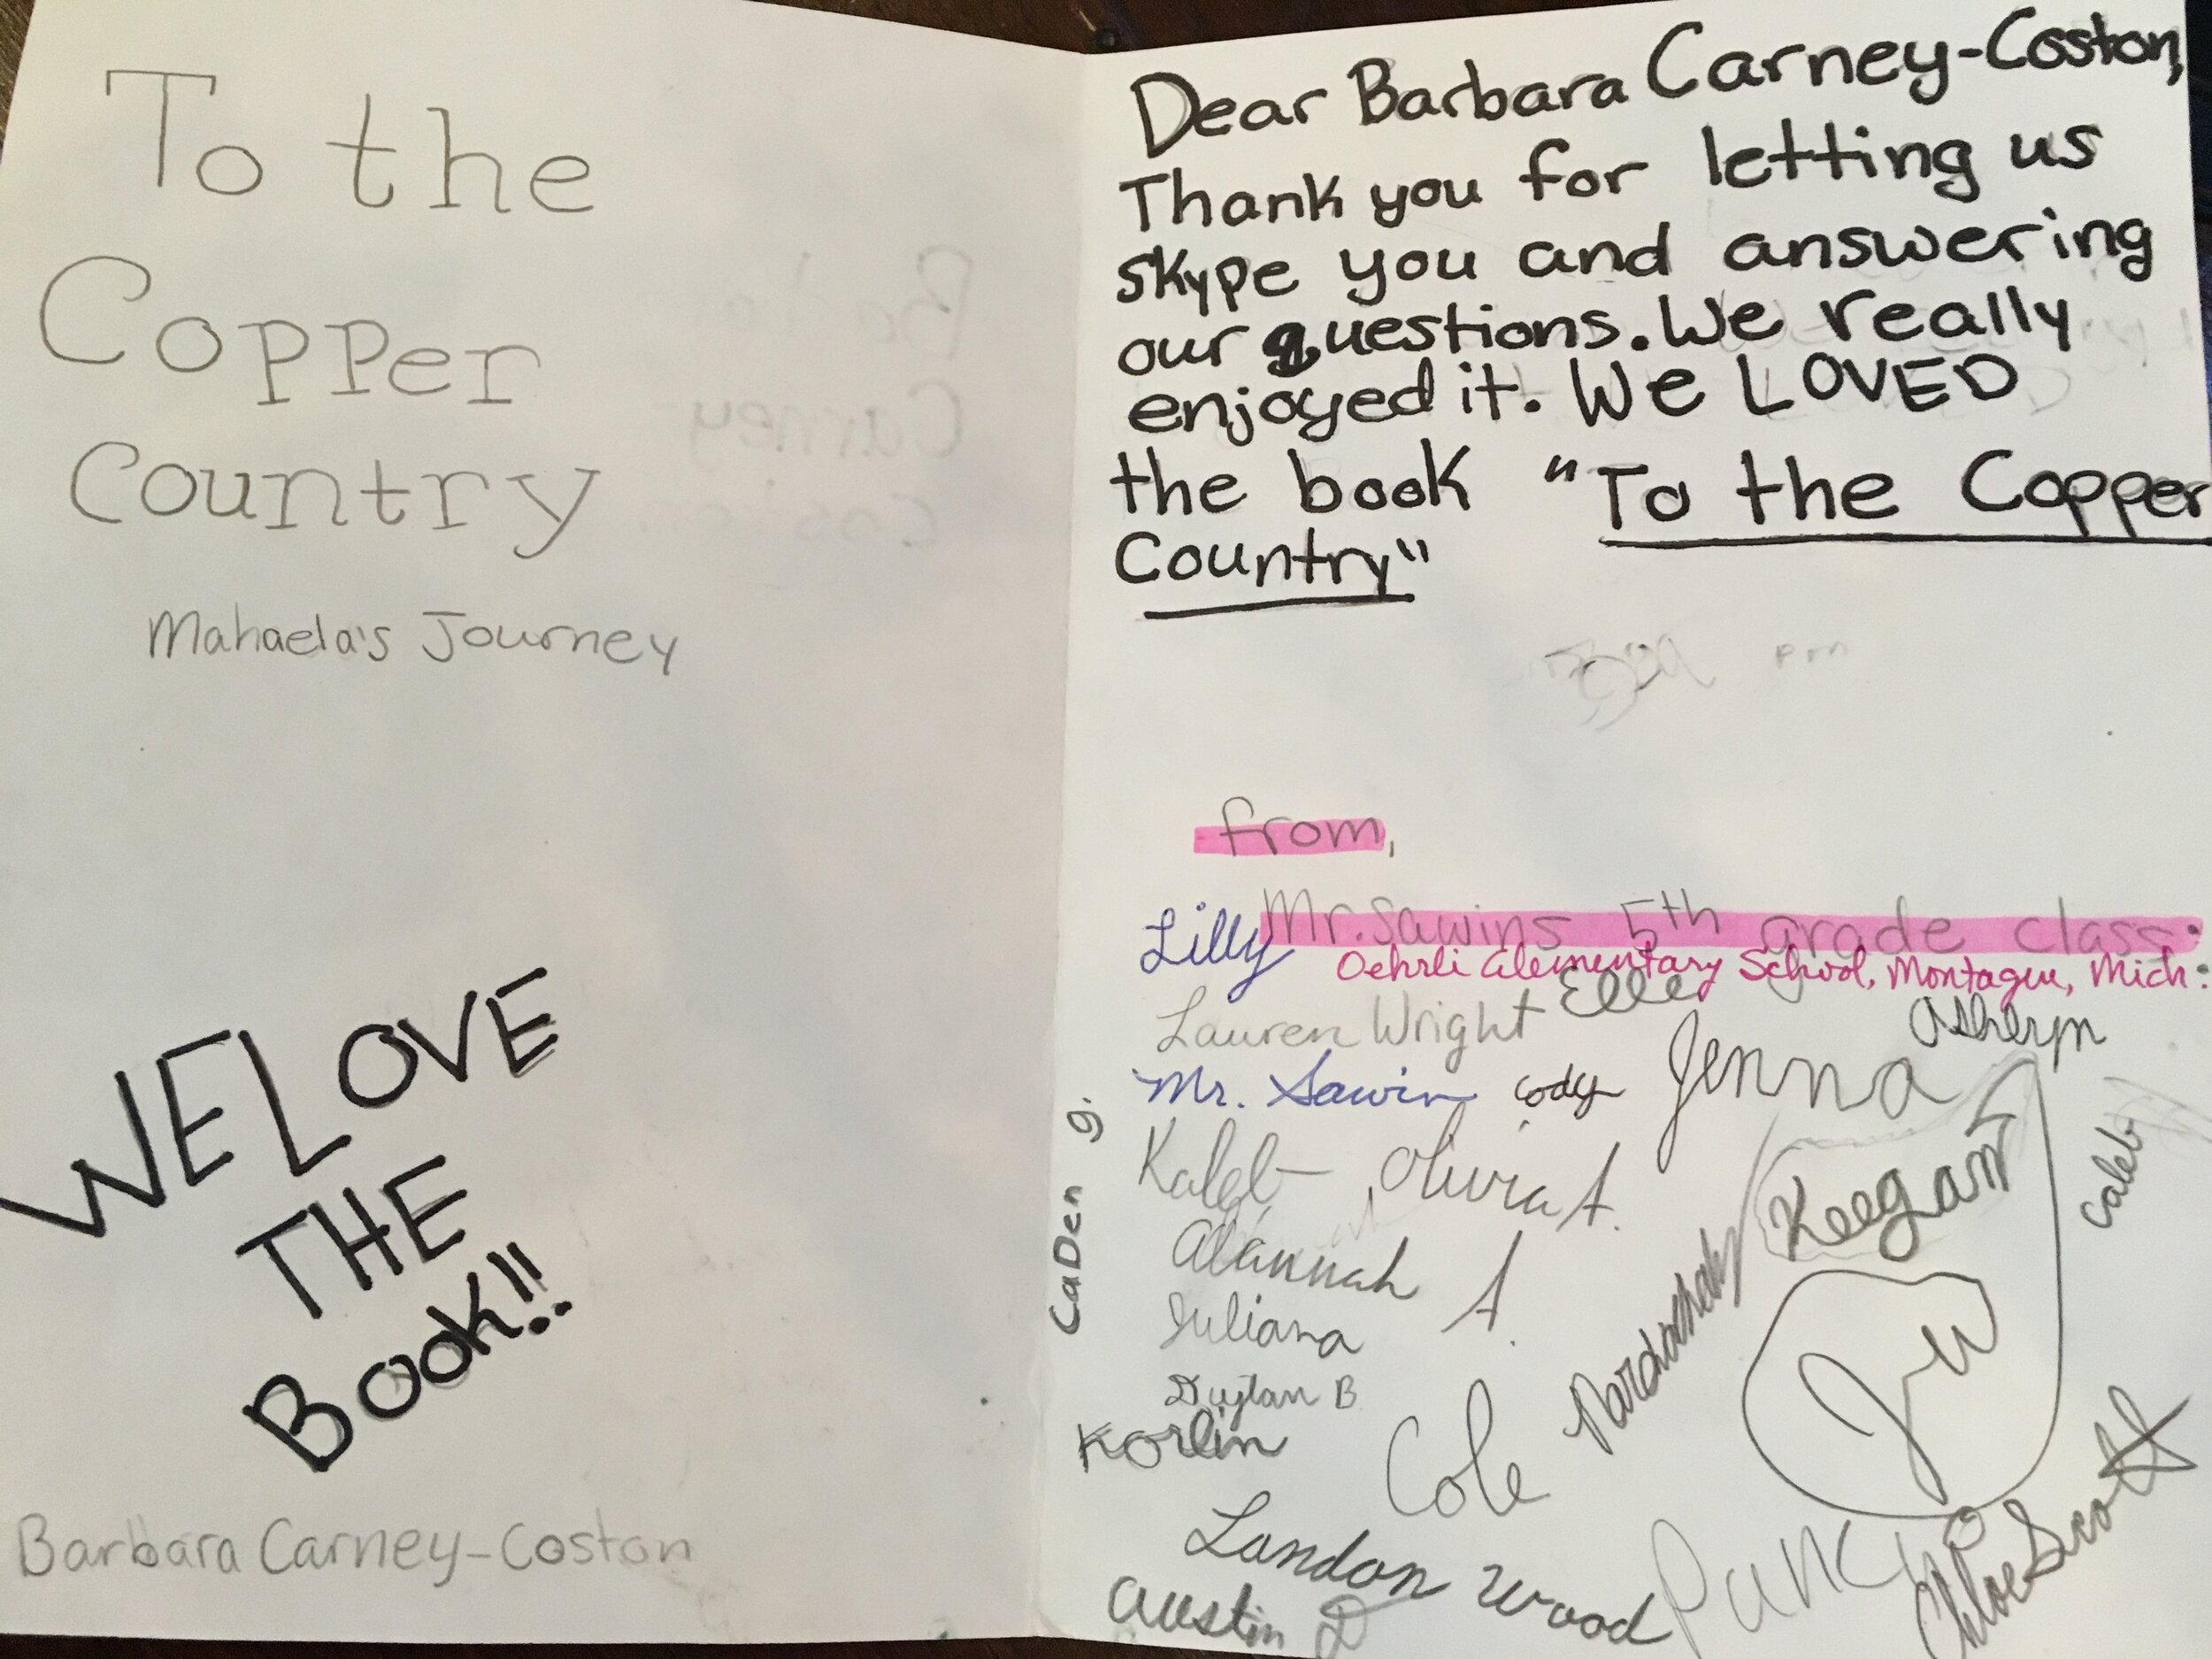 To the
Copper
Country
Mahaela's Journey
WE LOVE
THE
Book!!
Barbara Carney-Coston
Dear Barbara Carney-Coston,
Thank you for letting us
skype you and answering
our questions. We really
enjoyed it. We LOVED
the book "To the Copper
Country"
from,
Mr. Sawins 5th grade class.
Lilly
Oehrli Elementary School, Montague, Mich.
Lauren Wright
Elle
Asheryn
Mr. Sawin
Cody
Jenna
CaDen g.
Kaleb
Olivia A.
Keegan
Caleb
Alannah A.
Juliana
JW
B
Korlin
Cole
Landon Wood
Chloe Scott
Austin D